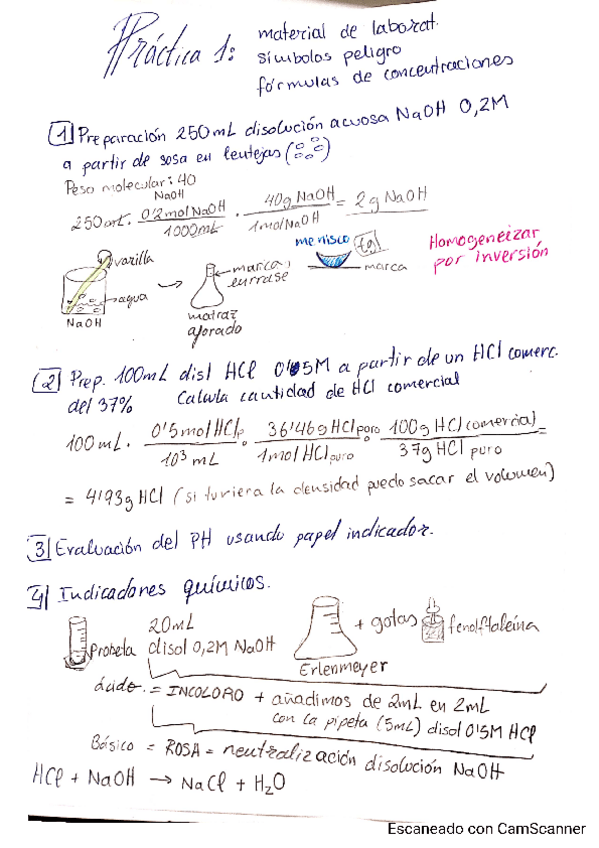 Práctica 1: material de laborat.
símbolos peligro
fórmulas de concentraciones
1 Preparación 250mL disolución acuosa NaOH 0,2M
a partir de sosa en lentejas
Peso molecular: 40
NaOH
250mL · 0'2mol NaOH / 1000mL · 40g NaOH / 1mol NaOH = 2g NaOH
varilla
agua
NaOH
marca,
enrrase
matraz
aforado
menisco
marca
Homogeneizar
por inversión
2 Prep. 100mL disl HCl 0'5M a partir de un HCl comerc.
del 37% Calcula cantidad de HCl comercial
100mL · 0'5mol HClp / 10³ mL · 36'46g HCl puro / 1mol HCl puro · 100g HCl (comercial) / 37g HCl puro =
= 4'93g HCl (si tuviera la densidad puedo sacar el volumen)
3 Evaluación del PH usando papel indicador.
4 Indicadores químicos.
Probeta
20mL
disol 0,2M NaOH
Erlenmeyer
+ gotas
fenolftaleína
ácido = INCOLORO + añadimos de 2mL en 2mL
con la pipeta (5mL) disol 0'5M HCl
Básico = ROSA = neutralización disolución NaOH
HCl + NaOH → NaCl + H₂O
Escaneado con CamScanner